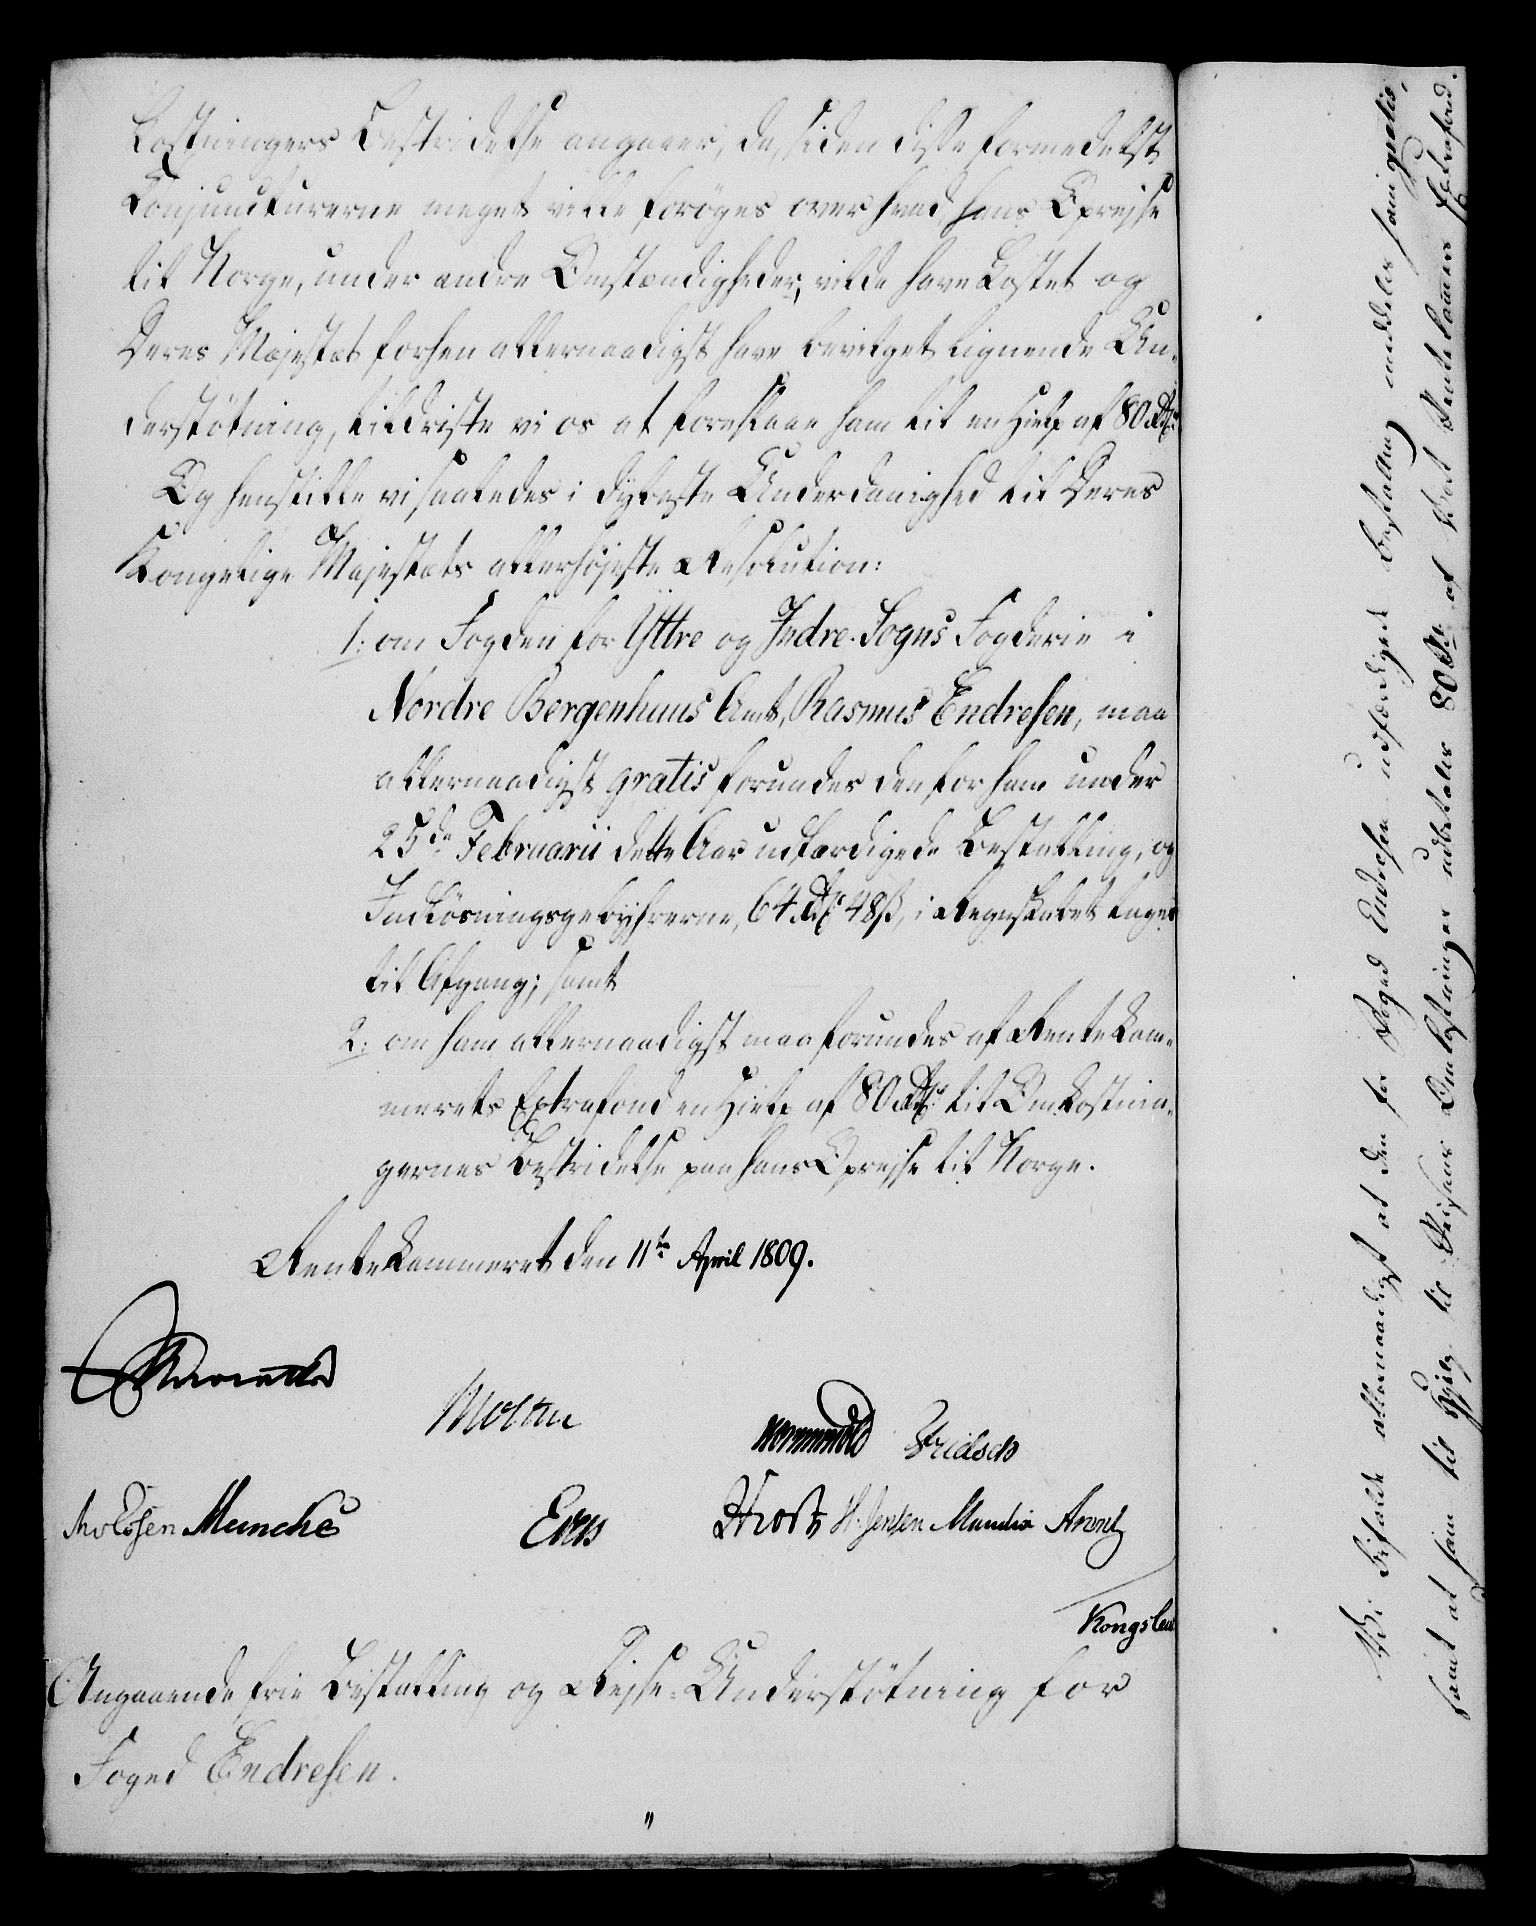 kostningers Bestridelse angaaer, da, siden disse formedelst
Conjuncturerne meget ville forøges over hvad hans Opreise
til Norge, under andre Omstændigheder, vilde have kostet og
Deres Majestæt forhen allernaadigst have bevilget lignende Un-
derstötning, tildriste vi os at foreslaae ham til en Hielp af 80 Rd.
Og henstille vi saaledes i dybeste Underdanighed til Deres
Kongelige Majestæts allerhöjeste Resolution:
1: om Fogden for Yttre og Indre Sogns Fogderie i
Nordre Bergenhuus Amt, Rasmus Endresen, maa
allernaadigst gratis forundes den for ham under
25de Februarii dette Aar udfærdigede Bestalling, og
Indlösningsgebyhrerne, 64 Rd. 48 ß, i Regnskabet tages
til Afgang; samt
2: om ham allernaadigst maa forundes af Rentekam-
merets Extrafond en Hielp af 80 Rd. til Omkostnin-
gernes Bestridelse paa hans Opreise til Norge.
Rentekammeret den 11te April 1809.
Moltke
Wormskiold Fridsch
Knudsen Munche
Evers
Hrost H. Jensen Mandix Arentz
Kongslew
Angaaende frie Bestalling og Reise-Understötning for
Foged Endresen.
Vi bifalde allernaadigst at den for Foged Endresen udfærdigede Bestalling meddeles ham gratis,
samt at ham til Hjelp til Reisens Omkostninger udbetales 80 Rd. af Vort Rentekammers Extrafond.